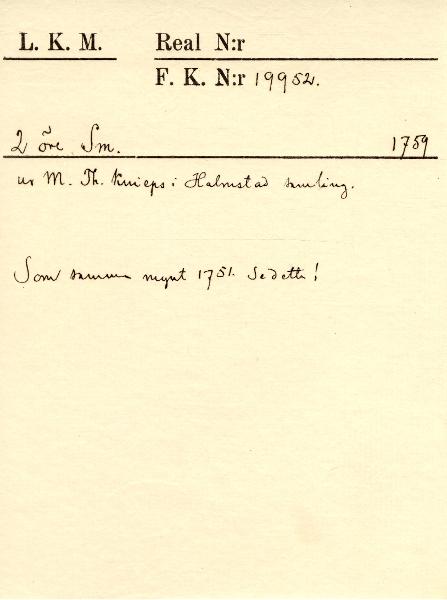 L. K. M. Real N:r
F. K. N:r 19952.
2 öre Sm. 1759
ur M. Th. Knieps i Halmstad samling.
Som samma mynt 1751. Se detta!